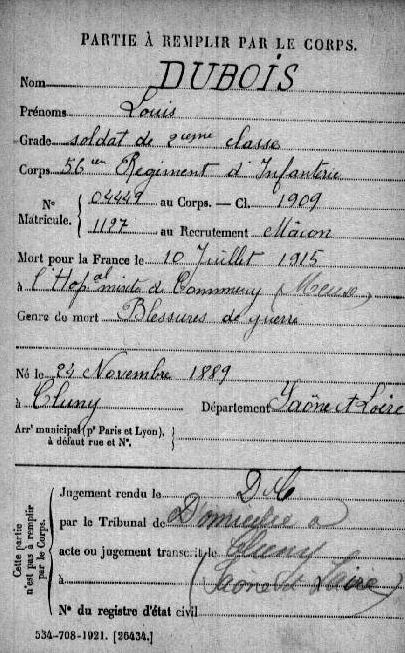 PARTIE À REMPLIR PAR LE CORPS.
Nom DUBOIS
Prénoms Louis
Grade soldat de 2ieme classe
Corps 56 em Régiment d'Infanterie
N° Matricule. { 04449 au Corps. — Cl. 1909
1127 au Recrutement Mâcon
Mort pour la France le 10 Juillet 1915
à l'Hop al mixte de Commercy (Meuse)
Genre de mort Blessures de guerre
Né le 24 Novembre 1889
à Cluny Département Saône et Loire
Arrt municipal (pr Paris et Lyon), à défaut rue et N°. {
Cette partie n'est pas à remplir par le Corps.
Jugement rendu le
par le Tribunal de Domicilié à
acte ou jugement transcrit le Cluny
à (Saône et Loire)
N° du registre d'état civil
534-708-1921. [26434.]